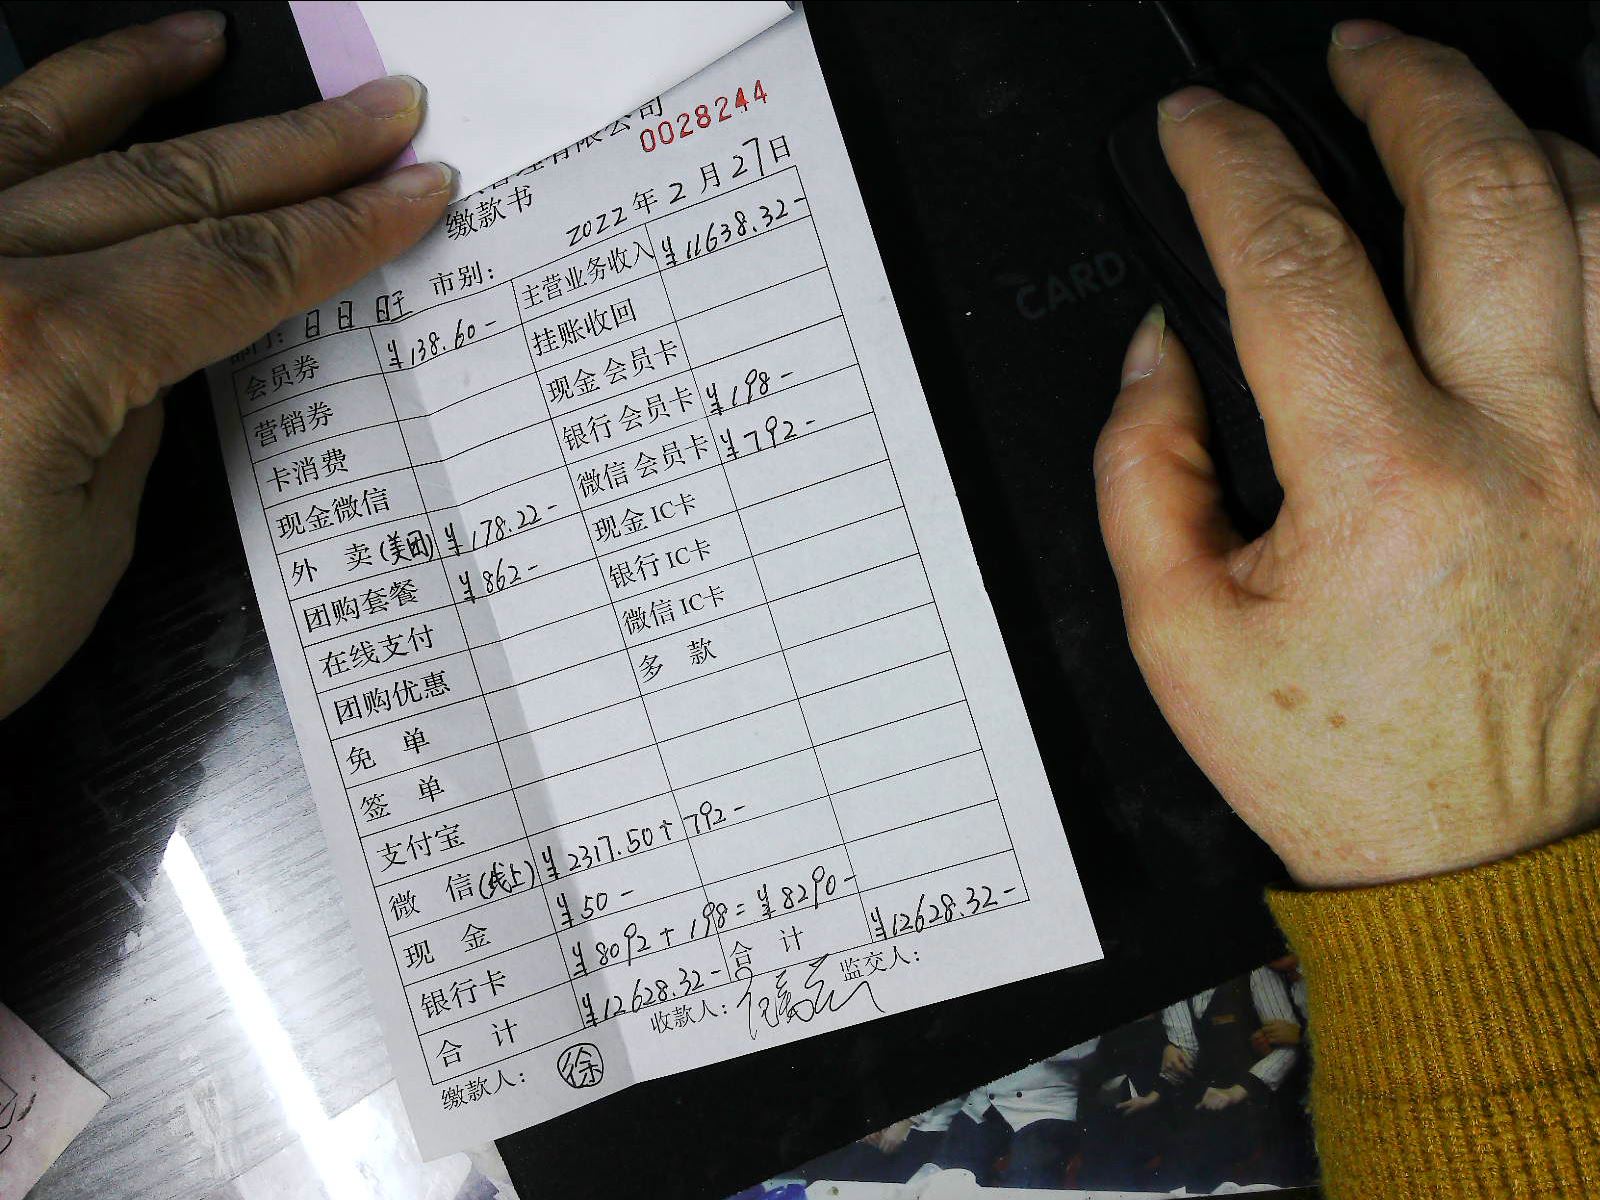 管理有限公司
0028244
缴款书
2022年2月27日
部门：日日旺 市别：
会员券 ¥138.60- 主营业务收入 ¥11638.32-
营销券 挂账收回
卡消费 现金会员卡
现金微信 银行会员卡 ¥198-
外 卖(美团) ¥178.22- 微信会员卡 ¥792-
团购套餐 ¥862- 现金IC卡
在线支付 银行IC卡
团购优惠 微信IC卡
免 单 多 款
签 单
支付宝
微 信(线上) ¥2317.50+792-
现 金 ¥50-
银行卡 ¥8092+198=¥8290-
合 计 ¥12628.32- 合 计 ¥12628.32-
缴款人：徐 收款人： 监交人：
CARD